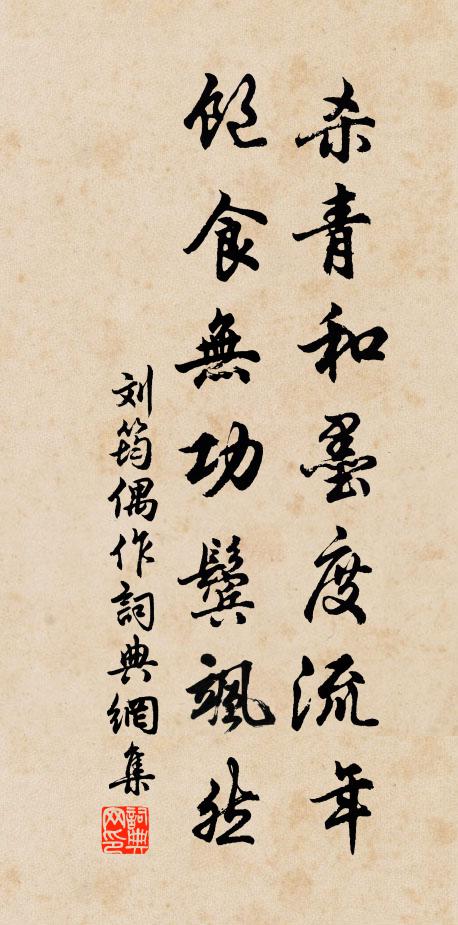 杀青和墨度流年
饱食無功鬓飒然
刘筠偶作詞典網集
詞典
网印